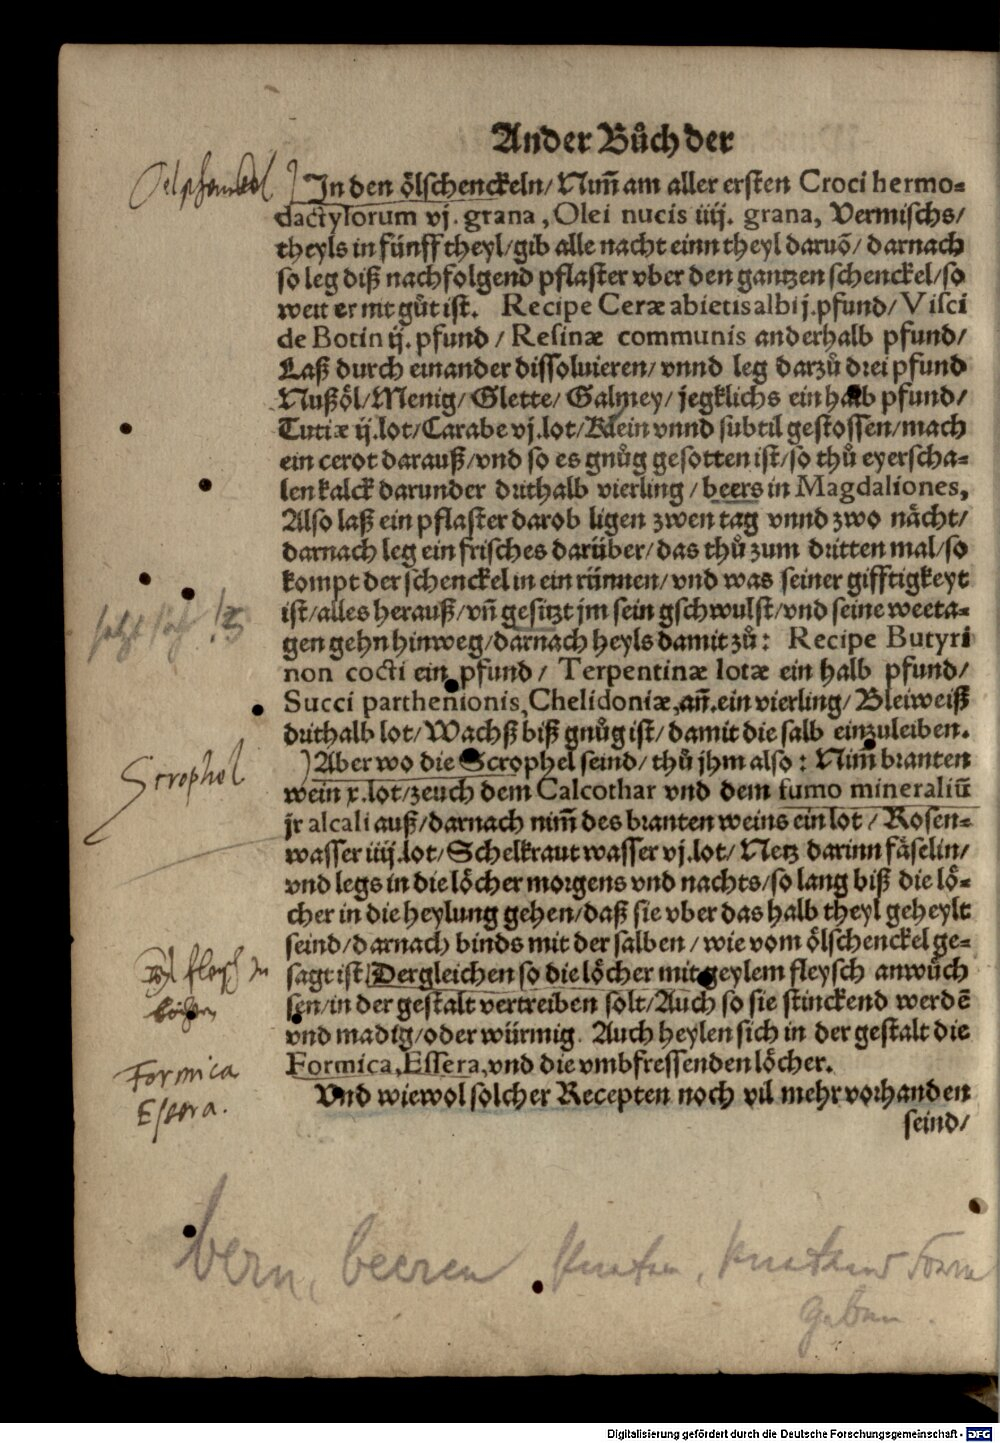 Ander Bůch der
In den ölschenckeln/ Nim̄ am aller ersten Croci hermo=
dactylorum vj. grana, Olei nucis iiij. grana, Vermischs/
theyls in fünff theyl/ gib alle nacht einn theyl daruō/ darnach
so leg diß nachfolgend pflaster vber den gantzen schenckel/ so
weit er nit gůt ist. Recipe Ceræ abietis albi j. pfund/ Visci
de Botin ij. pfund / Resinæ communis anderhalb pfund/
Laß durch einander dissoluieren/ vnnd leg darzů drei pfund
Nußöl/ Menig/ Glette/ Galmey/ jegklichs ein halb pfund/
Tutiæ ij. lot/ Carabe vj. lot/ Klein vnnd subtil gestossen/ mach
ein cerot darauß/ vnd so es gnůg gesotten ist/ so thů eyerscha=
len kalck darunder drithalb vierling / beers in Magdaliones,
Also laß ein pflaster darob ligen zwen tag vnnd zwo nächt/
darnach leg ein frisches darüber/ das thů zum dritten mal/ so
kompt der schenckel in ein rünnen/ vnd was seiner gifftigkeyt
ist/ alles herauß/ vn̄ gesitzt jm sein gschwulst/ vnd seine weeta=
gen gehn hinweg/ darnach heyls damit zů: Recipe Butyri
non cocti ein pfund / Terpentinæ lotæ ein halb pfund/
Succi parthenionis, Chelidoniæ, an̄. ein vierling/ Bleiweiß
drithalb lot/ Wachß biß gnůg ist/ damit die salb einzuleiben.
Aber wo die Scrophel seind/ thů jhm also: Nim̄ branten
wein x. lot/ zeuch dem Calcothar vnd dem fumo mineraliū
jr alcali auß/ darnach nim̄ des branten weins ein lot / Rosen=
wasser iiij. lot/ Schelkraut wasser vj. lot/ Netz darinn fäselin/
vnd legs in die löcher morgens vnd nachts/ so lang biß die lö=
cher in die heylung gehen/ daß sie vber das halb theyl geheylt
seind/ darnach binds mit der salben / wie vom ölschenckel ge=
sagt ist. Dergleichen so die löcher mit geylem fleysch anwůch
sen/ in der gestalt vertreiben solt/ Auch so sie stinckend werdē
vnd madig/ oder würmig. Auch heylen sich in der gestalt die
Formica, Essera, vnd die vmbfressenden löcher.
Vnd wiewol solcher Recepten noch vil mehr vorhanden
seind/
Scrophel
Formica
Essera.
bern, beeren kneten, Form
geben.
Digitalisierung gefördert durch die Deutsche Forschungsgemeinschaft - DFG